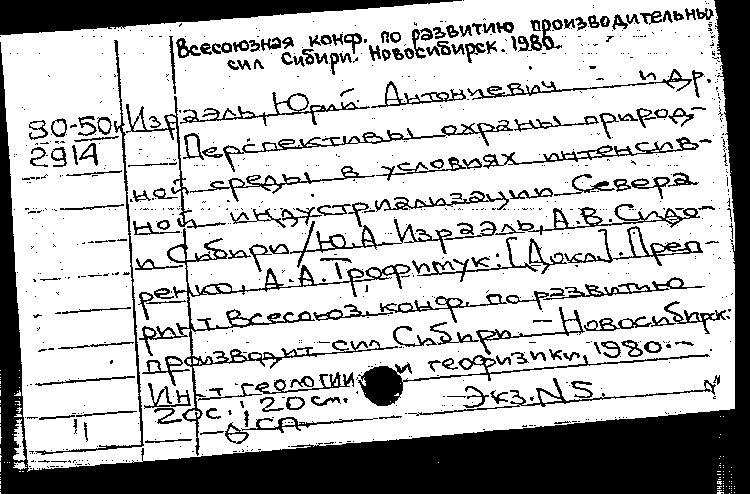 Всесоюзная конф. по развитию производительны
сил Сибири. Новосибирск. 1980.
80-50к
2914
Израэль, Юрий Антониевич и др.
Перспективы охраны природ-
ной среды в условиях интенсив-
ной индустриализации Севера
и Сибири / Ю.А. Израэль, А.В. Сидо-
ренко, А.А. Трофимук: [Докл.]. Преп-
ринт. Всесоюз. конф. по развитию
производит. сил Сибири. — Новосибирск:
Ин-т геологии и геофизики, 1980. —
20с.; 20 см.
Экз. N5.